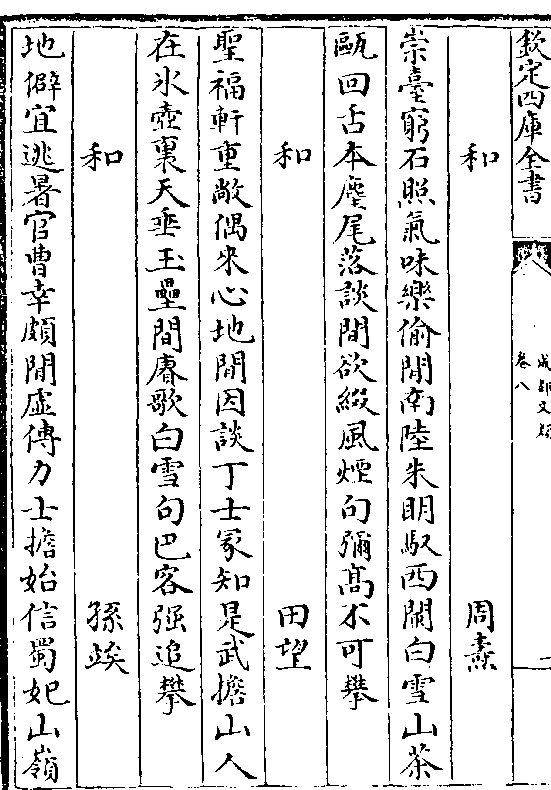 欽定四庫全書
成都文類
卷八
和
周燾
崇臺窮石照氣味樂偷閒南陸朱明馭西闌白雪山茶
甌回舌本麈尾落談間欲綴風煙句彌髙不可攀
和
田望
聖福軒重敞偶来心地閒因談丁士冢知是武擔山人
在氷壺裏天垂玉壘間賡歌白雪句巴客强追攀
和
孫竢
地僻宜逃暑官曹幸頗閒虛傳力士擔始信蜀妃山嶺